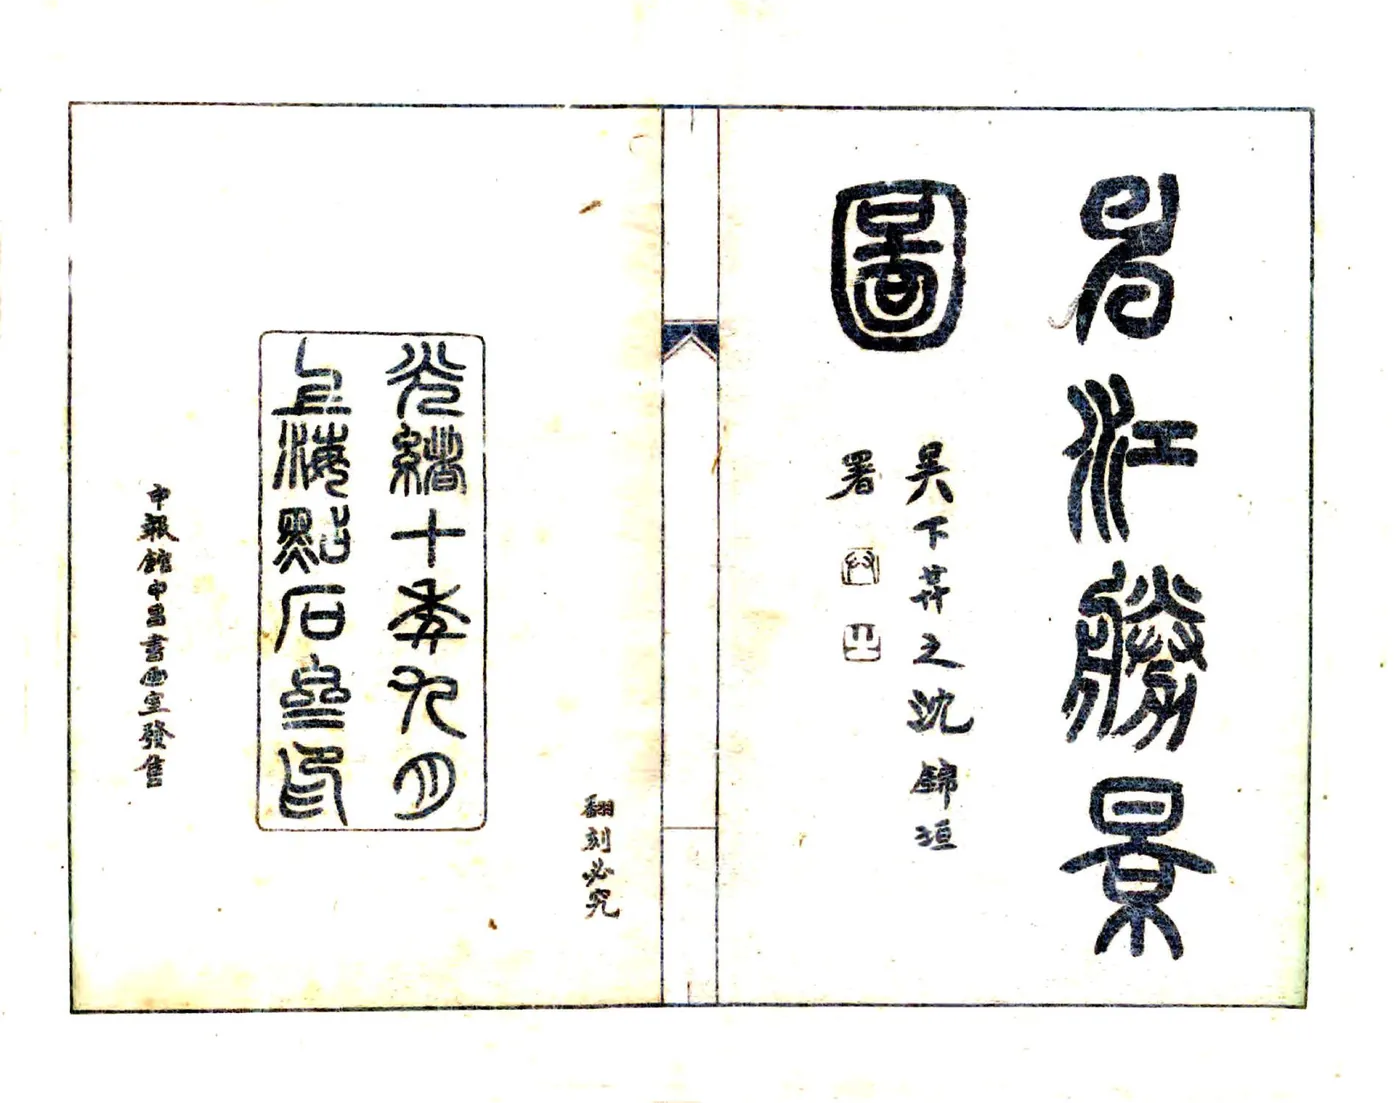 申江勝景
圖
吳下之沈錦垣
署
翻刻必究
光緒十年九月
上海點石齋印
申報館申昌書画室發售